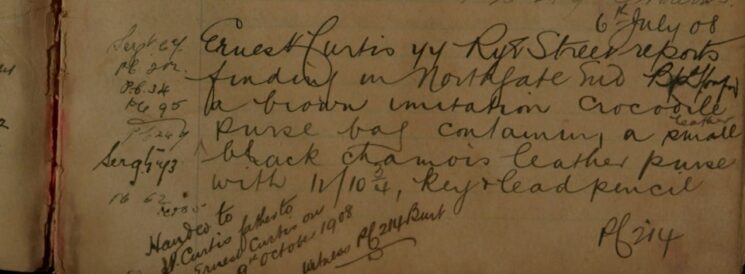 6th July 08
Ernest Curtis 44 Rye Street reports
finding in Northgate End
a brown imitation Crocodile
purse bag containing a small
leather
black chamois leather purse
with 11/10 3/4, key & lead pencil
PC 214
Sergt 64
PC 34
PC 95
Sergt 43
PC 62
Handed to
Curtis father to
Ernest Curtis on
9th October 1908
Witness PC 214 Burt